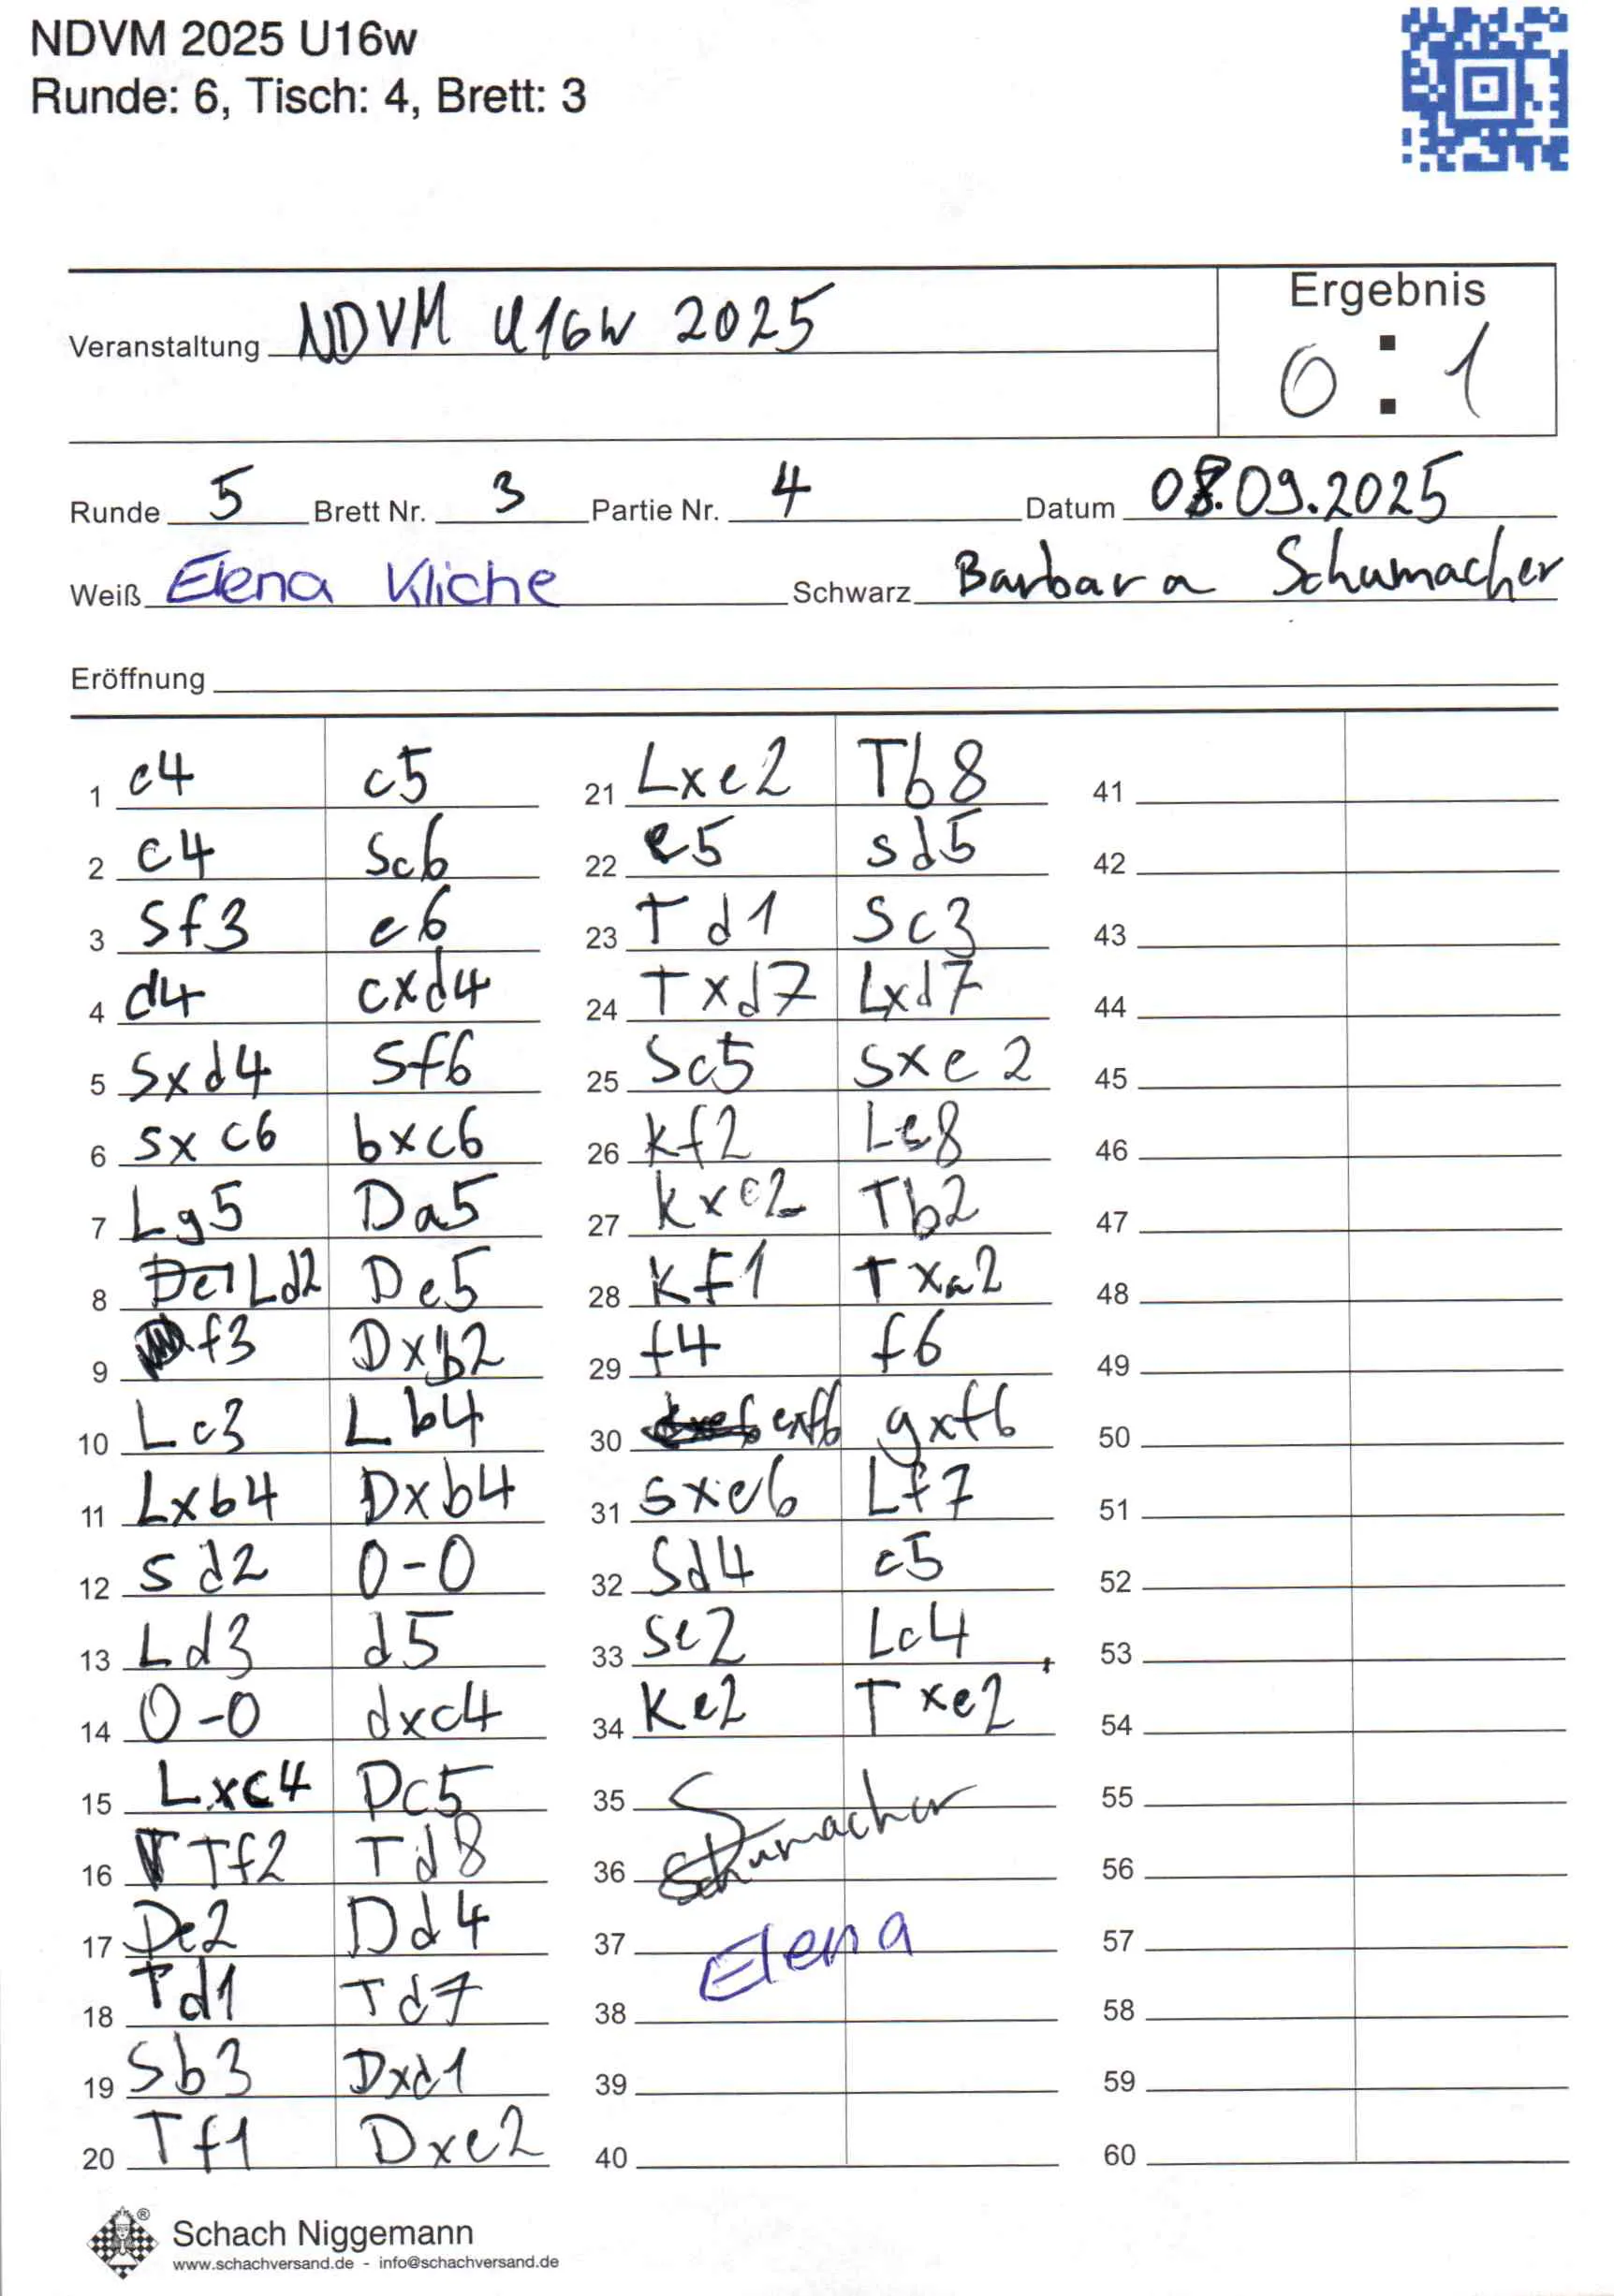 NDVM 2025 U16w
Runde: 6, Tisch: 4, Brett: 3
Ergebnis
Veranstaltung NDVM U16W 2025
0 : 1
Runde 5 Brett Nr. 3 Partie Nr. 4 Datum 08.09.2025
Weiß Elena Kliche Schwarz Barbara Schumacher
Eröffnung
1 e4 c5
2 c4 Sc6
3 Sf3 e6
4 d4 cxd4
5 Sxd4 Sf6
6 Sxc6 bxc6
7 Lg5 Da5
8 Ld2 De5
9 f3 Dxb2
10 Lc3 Lb4
11 Lxb4 Dxb4
12 Sd2 0-0
13 Ld3 d5
14 0-0 dxc4
15 Lxc4 Dc5
16 Tf2 Td8
17 De2 Dd4
18 Td1 Td7
19 Sb3 Dxd1
20 Tf1 Dxe2
21 Lxe2 Tb8
22 e5 Sd5
23 Td1 Sc3
24 Txd7 Lxd7
25 Sc5 Sxe2
26 Kf2 Le8
27 Kxe2 Tb2
28 Kf1 Txa2
29 f4 f6
30 exf6 gxf6
31 Sxe6 Lf7
32 Sd4 c5
33 Se2 Lc4
34 Ke2 Txe2
35 Schumacher
36
37 Elena
38
39
40
41
42
43
44
45
46
47
48
49
50
51
52
53
54
55
56
57
58
59
60
Schach Niggemann
www.schachversand.de - info@schachversand.de